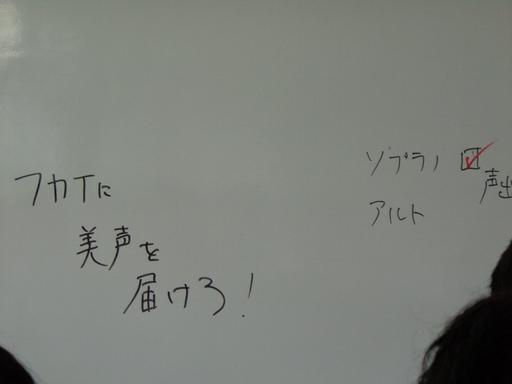 フカTに
美声を
届けろ!
ソプラノ
声出
アルト